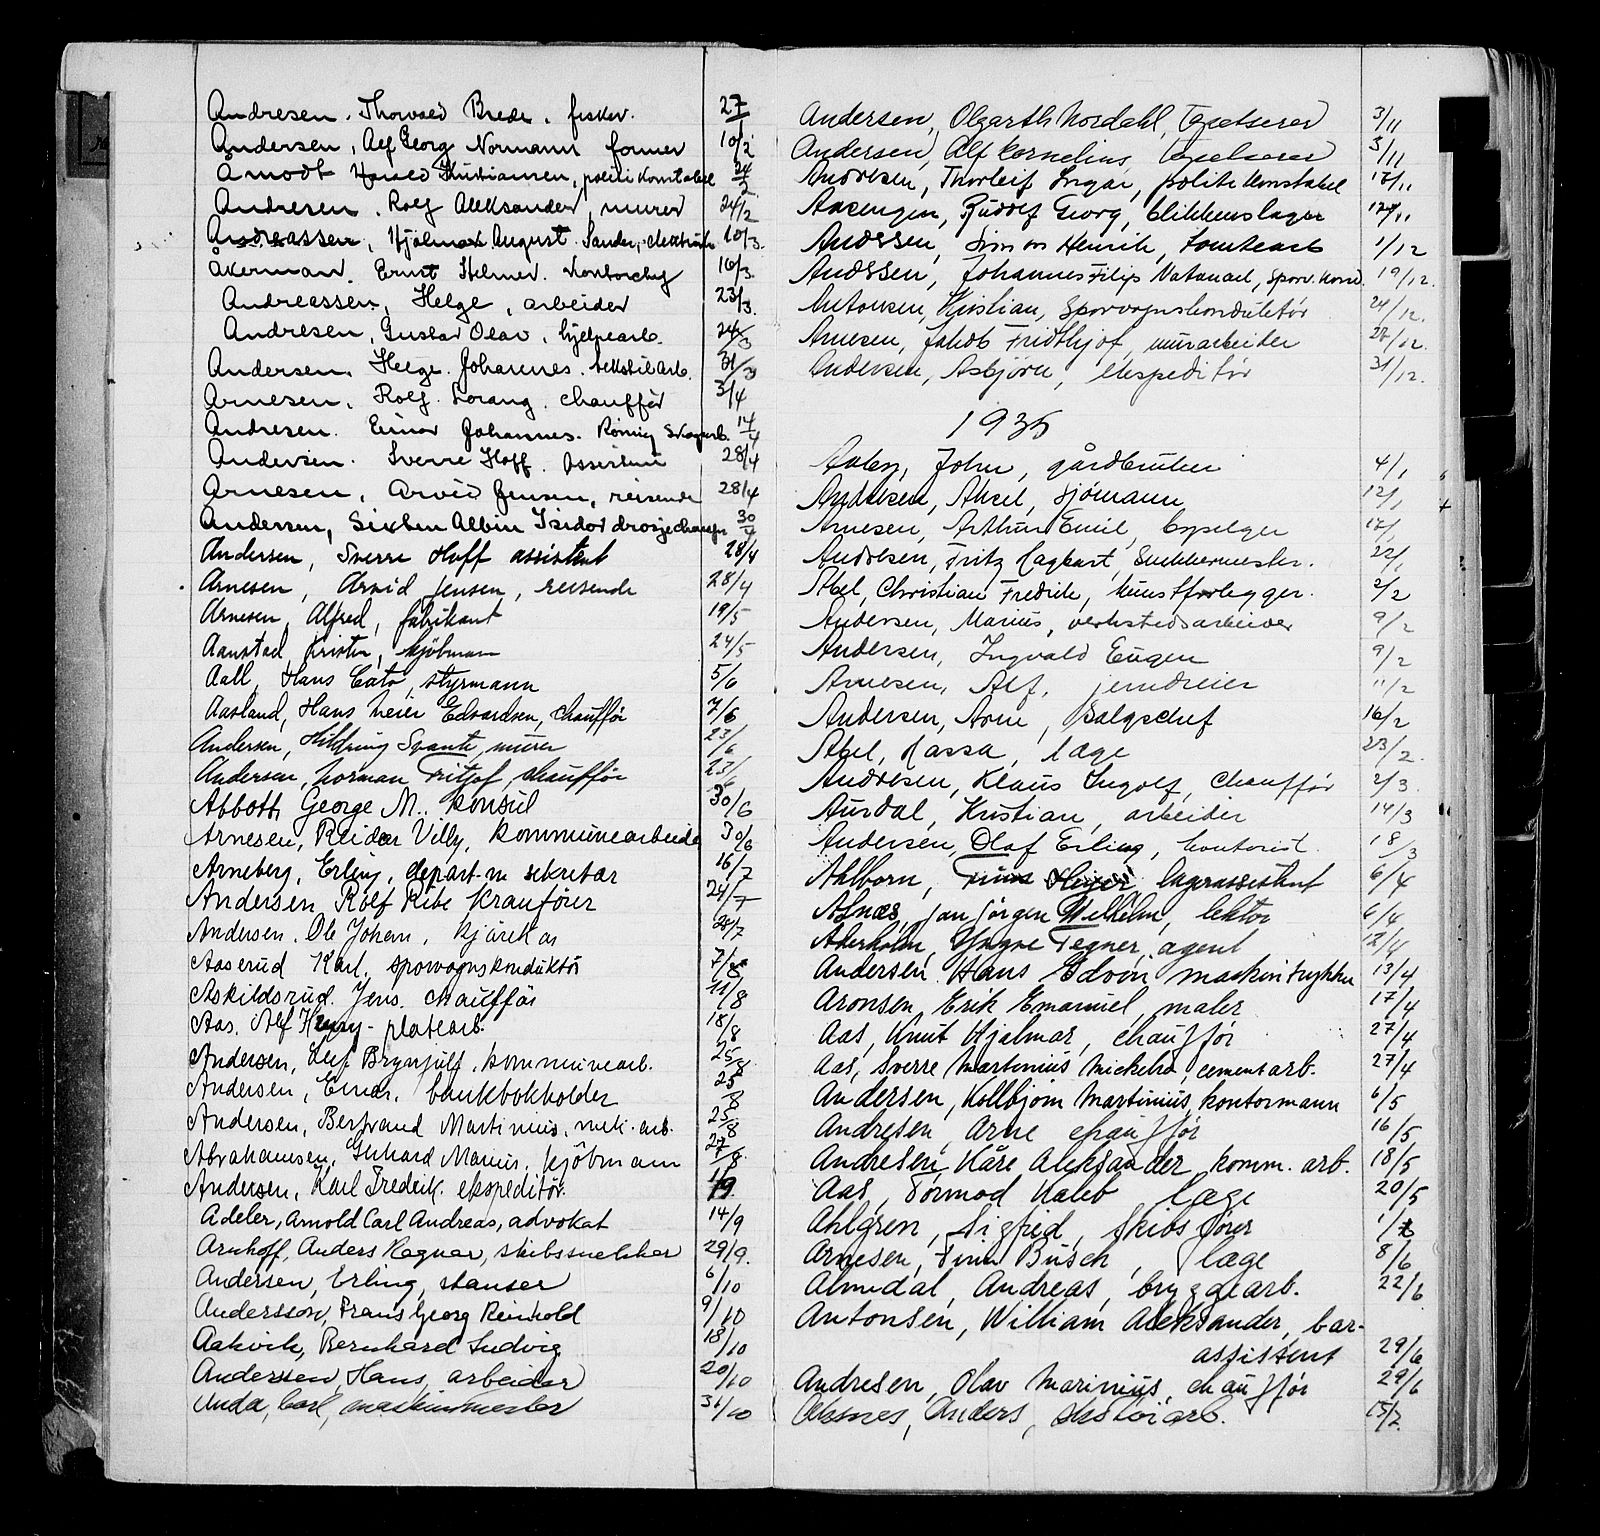 Andresen. Thorvald Brede. fisker. 27/
Andersen, Alf Georg Normann former 10/2
Åmodt Harald Kristiansen, politikonstabel 24/2
Andresen. Rolf Aleksander, murer 24/2
Andreassen, Hjalmar August. 10/3.
Åkerman. Ernst Helmer. 16/3
Andreassen, Helge, arbeider 23/3.
Andresen, Gustav Olav, hjelpearb. 24/3
Andersen, Helge. Johannes. tekstilarb. 31/3
Arnesen, Rolf. Lorang. chauffør 3/4
Andresen. Einar Johannes. 14/4
Andersen. Sverre Hoff. assistent 28/4
Arnesen, Arvid Jensen, reisende 28/4
Andersen, Sixten Albin Isidor drosjechauffør 30/4
Andersen, Sverre Hoff assistent 28/4
Arnesen, Arvid Jensen, reisende 28/4
Arnesen, Alfred, fabrikant 19/5
Aanstad, Kristen, kjöbmann 24/5
Aall, Hans Cato, styrmann 5/6
Aasland, Hans Meier Edvardsen, chauffør 7/6
Andersen, Hildning Svante, murer 23/6
Andersen, Norman Fritjof, chauffør 23/6
Abbott, George M., konsul 30/6
Arnesen, Reidar Villy, kommunearbeider 30/6
Arneberg, Erling, depart.m sekretær 16/7
Andersen, Rolf Ribe kranfører 24/7
Andersen. Ole Johan, 28/7
Aaserud Karl, sporvognskonduktör 7/8
Askildsrud. Jens. chauffør 11/8
Aas. Alf Henry - platearb. 18/8
Andersen, Leif Brynjulf. kommunearb. 25/8
Andersen, Einar, bankbokholder 25/8
Andersen, Bertrand Martinius. mek. arb. 25/8
Abrahamsen, Gerhard Marius. kjöbmann 27/8
Andersen, Karl Frederik. ekspeditör. 1/9.
Adeler, Arnold Carl Andreas, advokat 14/9
Arnhoff, Anders Ragnar, skibssnekker 29/9.
Andersen, Erling, stanser 6/10
Andersson, Frans Georg Reinhold 9/10
Aakvik, Bernhard Ludvig 18/10
Andersen, Hans, arbeider 20/10
Anda, Carl, maskinmester 31/10
Andersen, Olgarth Nordahl, 3/11
Andersen, Alf Cornelius, 3/11
Andresen, Thorleif Ingar, politikonstabel 17/11
Aasengen, Rudolf Georg, blikkenslager 24/11
Andersen, Simon Henrik, tomtearb 1/12
Andersen, Johannes Filip Natanael, sporv. kond. 19/12.
Antonsen, Kristian, Sporvognskonduktör 21/12.
Arnesen, Jakob Fridthjof, murarbeider 28/12.
Andersen, Asbjörn, ekspeditör 31/12.
1935
Aaby, John, gårdbruker 4/1
Andresen, Aksel, sjömann 12/1 +
Arnesen, Arthur Emil, byselger 17/1
Andresen, Fritz Dagbart, Snekkermester. 22/1
Abel, Christian Fredrik, kunstforlegger. 2/2
Andersen, Marius, verkstedsarbeider 9/2
Andersen, Ingvald Eugen 9/2
Arnesen, Alf, jerndreier 11/2
Andersen, Arne, Salgschef 16/2
Abel, Lassa, læge 23/2.
Andresen, Klaus Ingolf, chauffør 2/3.
Aurdal, Kristian, arbeider 14/3
Andersen, Olaf Erling, kontorist. 18/3
Ahlborn, lagerassistent 6/4
Afnæs, Jan Jörgen Wilhelm, lektor 6/4
Aderholm, Yngve Tegner, agent 12/4
Andersen Hans Edvin maskintrykker 13/4
Aronsen, Erik Emanuel, maler 17/4
Aas, Knut Hjalmar, chauffør 27/4
Aas, Sverre Martinius Mickelsen, cementarb. 27/4
Andersen, Kolbjørn Martinius, kontormann 6/5
Andresen, Arne chauffør 16/5
Andresen, Kåre Aleksander, komm. arb. 18/5
Aas, Tormod Kaleb, læge 20/5
Ahlgren, Sigfred, skibsfører 1/
Arnesen, Finn Busch, læge 8/6
Almedal, Andreas, bryggearb. 22/6
Antonsen, William Aleksander, bar-
assistent 29/6
Andresen, Olav Marinius, chauffør 29/6
Aksnes, Anders, skotöiarb. 15/7.